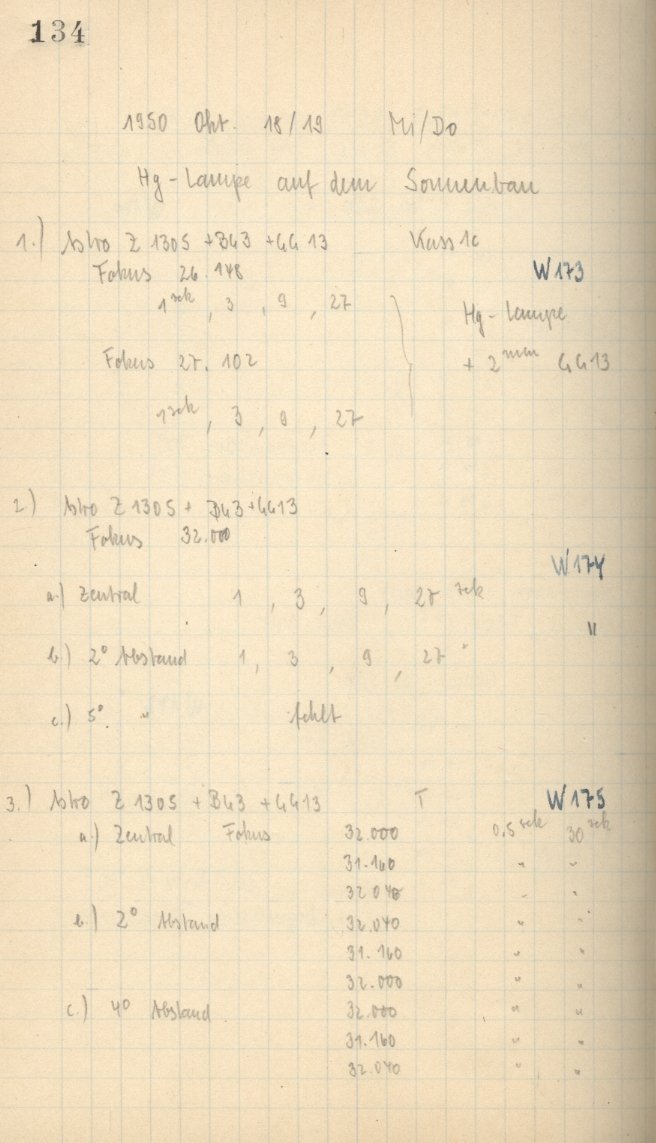 134
1950 Okt. 18/19 Mi/Do
Hg-Lampe auf dem Sonnenbau
1.) Astro Z 1305 + BG3 + GG 13 Kass 1c
Fokus 26.148 W173
1 sek, 3, 9, 27 Hg-Lampe
Fokus 27.102 + 2 mm GG13
1 sek, 3, 9, 27
2.) Astro Z 1305 + BG3 + GG13
Fokus 32.000
W174
a.) Zentral 1, 3, 9, 27 sek
"
b.) 2° Abstand 1, 3, 9, 27 "
c.) 5° " fehlt
3.) Astro Z 1305 + BG3 + GG13 T W175
a.) Zentral Fokus 32.000 0,5 sek 30 sek
31.160 " "
32.040 " "
b.) 2° Abstand 32.040 " "
31.160 " "
32.000 " "
c.) 4° Abstand 32.000 " "
31.160 " "
32.040 " "